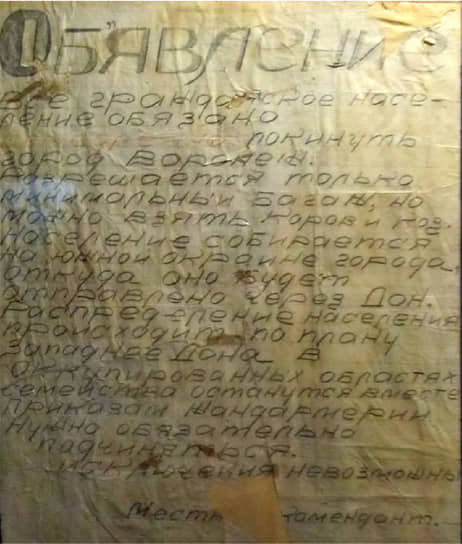 Объявление
Все грандатское насе-
ление обязано
покинуть
город Воронеж.
Разрешается только
минимальный багаж, но
можно взять коров и коз.
население собирается
на южной окраине города,
откуда оно будет
отправлено через Дон.
Распределение населения
происходит по плану
западнее Дона в
оккупированных областях
семейства останутся вместе
Приказам жандармерии
нужно обязательно
падчиняться.
Исключения невозможны
Местн комендант.